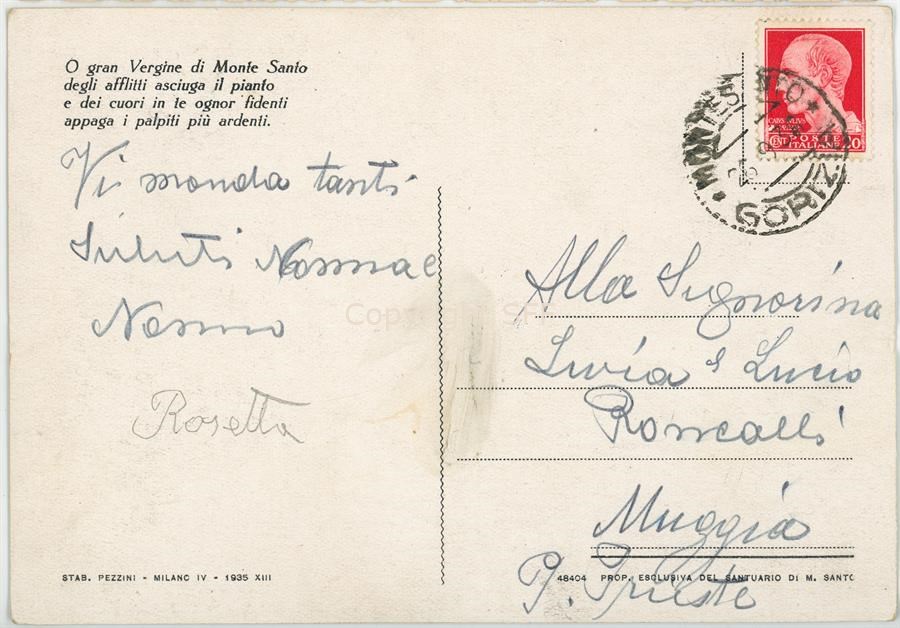 O gran Vergine di Monte Santo
degli afflitti asciuga il pianto
e dei cuori in te ognor fidenti
appaga i palpiti più ardenti.
Vi monda tanti
Saluti Nonna e
Nonno
Rosetta
POSTE
ITALIANE
MONTESANTO * GORIZIA
Alla Signorina
Livia e Lucio
Roncalli
Muggia
P. Trieste
Copyright SFF
STAB. PEZZINI - MILANO IV - 1935 XIII
48404 PROP. ESCLUSIVA DEL SANTUARIO DI M. SANTO